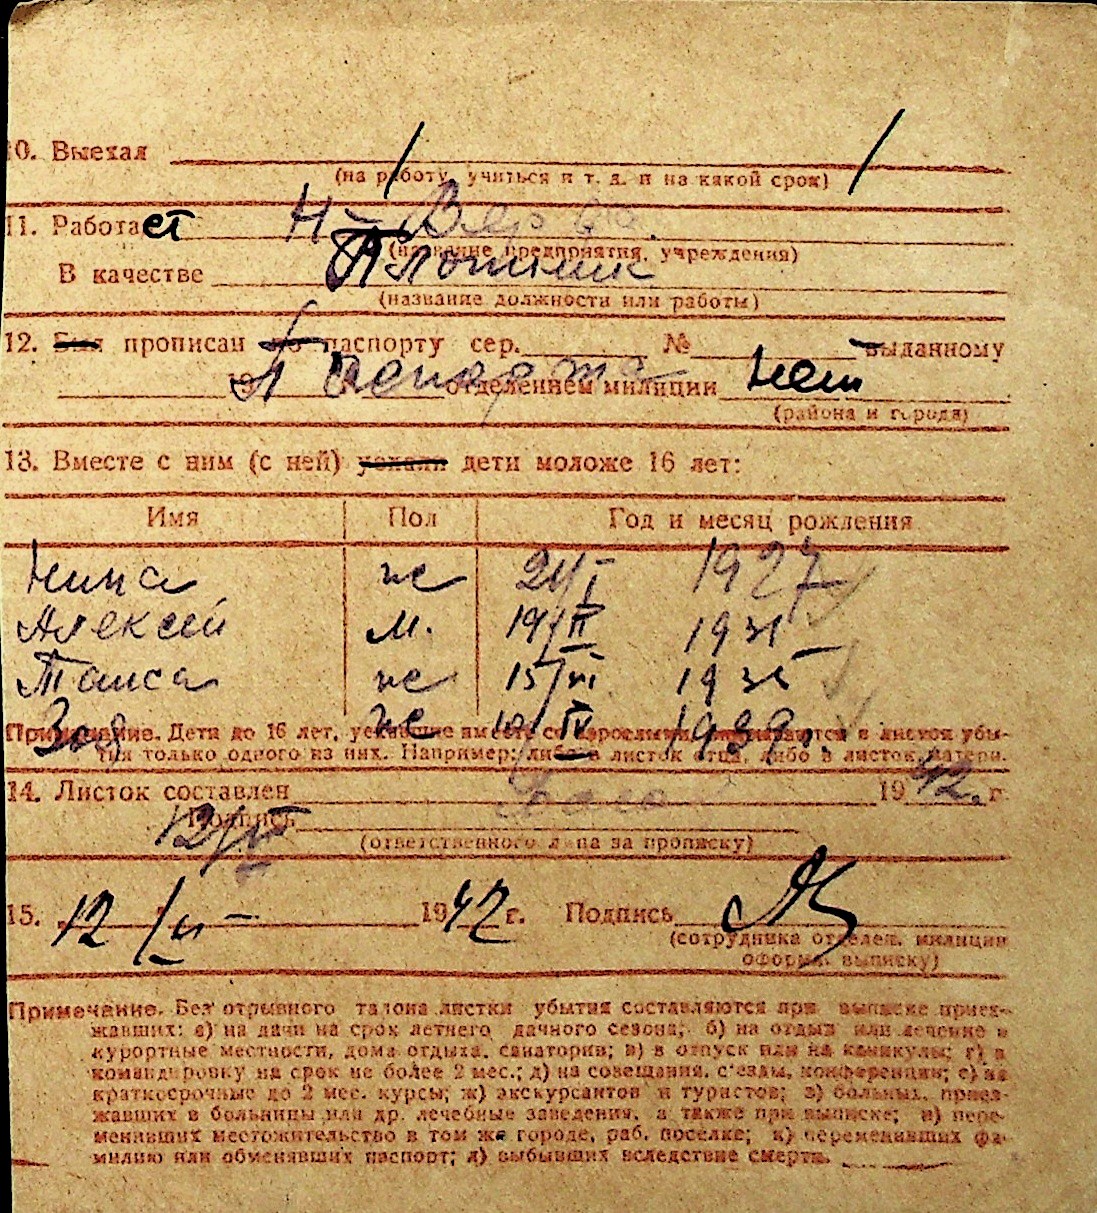 10. Выехал
(на работу, учиться и т. д. и на какой срок)
11. Работает
(название предприятия, учреждения)
В качестве Плотник
(название должности или работы)
12. Был прописан по паспорту сер. № выданному
19 отделением милиции
Паспорта нет
(района и города)
13. Вместе с ним (с ней) уехали дети моложе 16 лет:
Имя Пол Год и месяц рождения
Нина ж 24/I 1927
Алексей м. 19/II 1931
Таиса ж 15/VI 1935
Зоя ж 10/IV 1939 г.
Примечание. Дети до 16 лет, уехавшие вместе со взрослыми, вписываются в листок убы-
тия только одного из них. Например: либо в листок отца, либо в листок матери.
14. Листок составлен 1942. г.
Подпись
(ответственного лица за прописку)
15. 12/VI 1942 г. Подпись
(сотрудника отделен. милиции
оформ. выписку)
Примечание. Без отрывного талона листки убытия составляются при выписке приез-
жавших: а) на дачи на срок летнего дачного сезона; б) на отдых или лечение в
курортные местности, дома отдыха, санатории; в) в отпуск или на каникулы; г) в
командировку на срок не более 2 мес.; д) на совещания, съезды, конференции; е) на
краткосрочные до 2 мес. курсы; ж) экскурсантов и туристов; з) больных, приез-
жавших в больницы или др. лечебные заведения, а также при выписке; и) пере-
менивших местожительство в том же городе, раб. поселке; к) переменивших фа-
милию или обменявших паспорт; л) выбывших вследствие смерти.